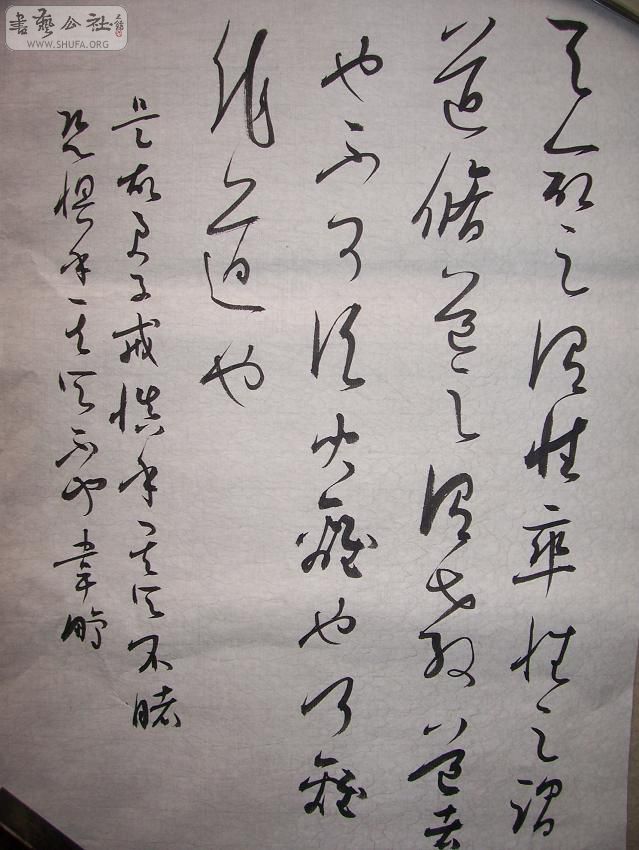 書藝公社
WWW.SHUFA.ORG
天命之謂性率性之謂
道脩道之謂教道者
也不可須臾離也可離
道也
是故君子戒慎乎其所不睹
恐懼乎其所不